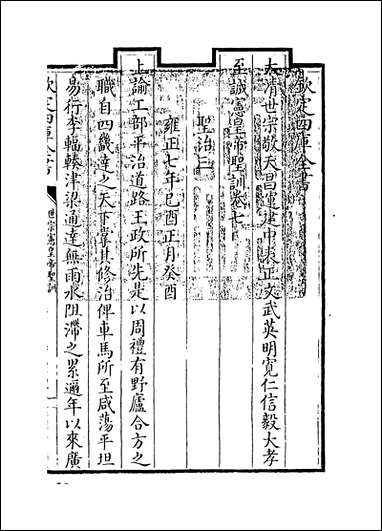 欽定四庫全書
大清世宗敬天昌運建中表正文武英明寬仁信毅大孝
至誠憲皇帝聖訓卷七
聖治三
雍正七年己酉正月癸酉
上諭工部平治道路王政所先是以周禮有野廬合方之
職自四畿達之天下掌其修治俾車馬所至咸蕩平坦
易行李輻輳津梁通達無雨水阻滯之累邇年以來廣
欽定四庫全書
世宗憲皇帝聖訓